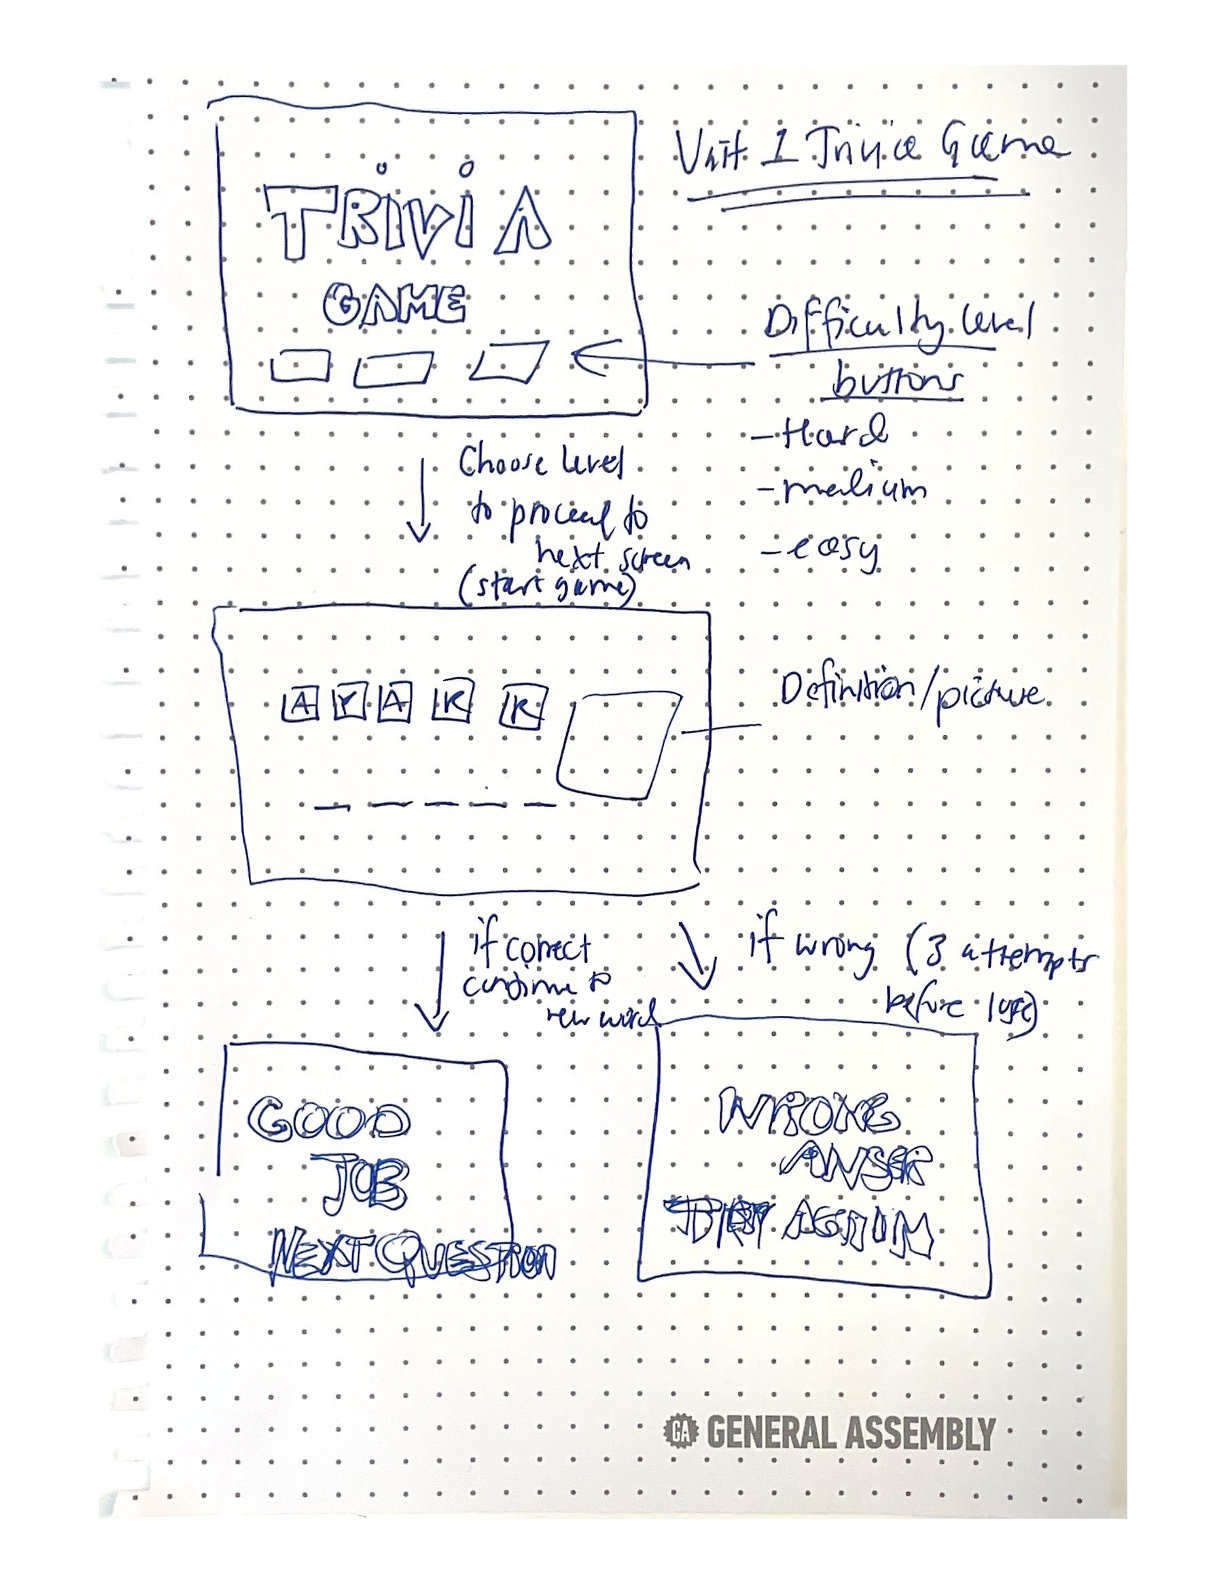 Unit 1 Trivia Game
TRiViA
GAME
Difficulty level
buttons
- Hard
- medium
- easy
Choose level
to proceed to
next screen
(start game)
A Y A K R
Definition/picture
if correct
continue to
new word
if wrong (3 attempts
before lose)
GOOD
JOB
NEXT QUESTION
WRONG
ANSER
TRY AGAIN
GA GENERAL ASSEMBLY